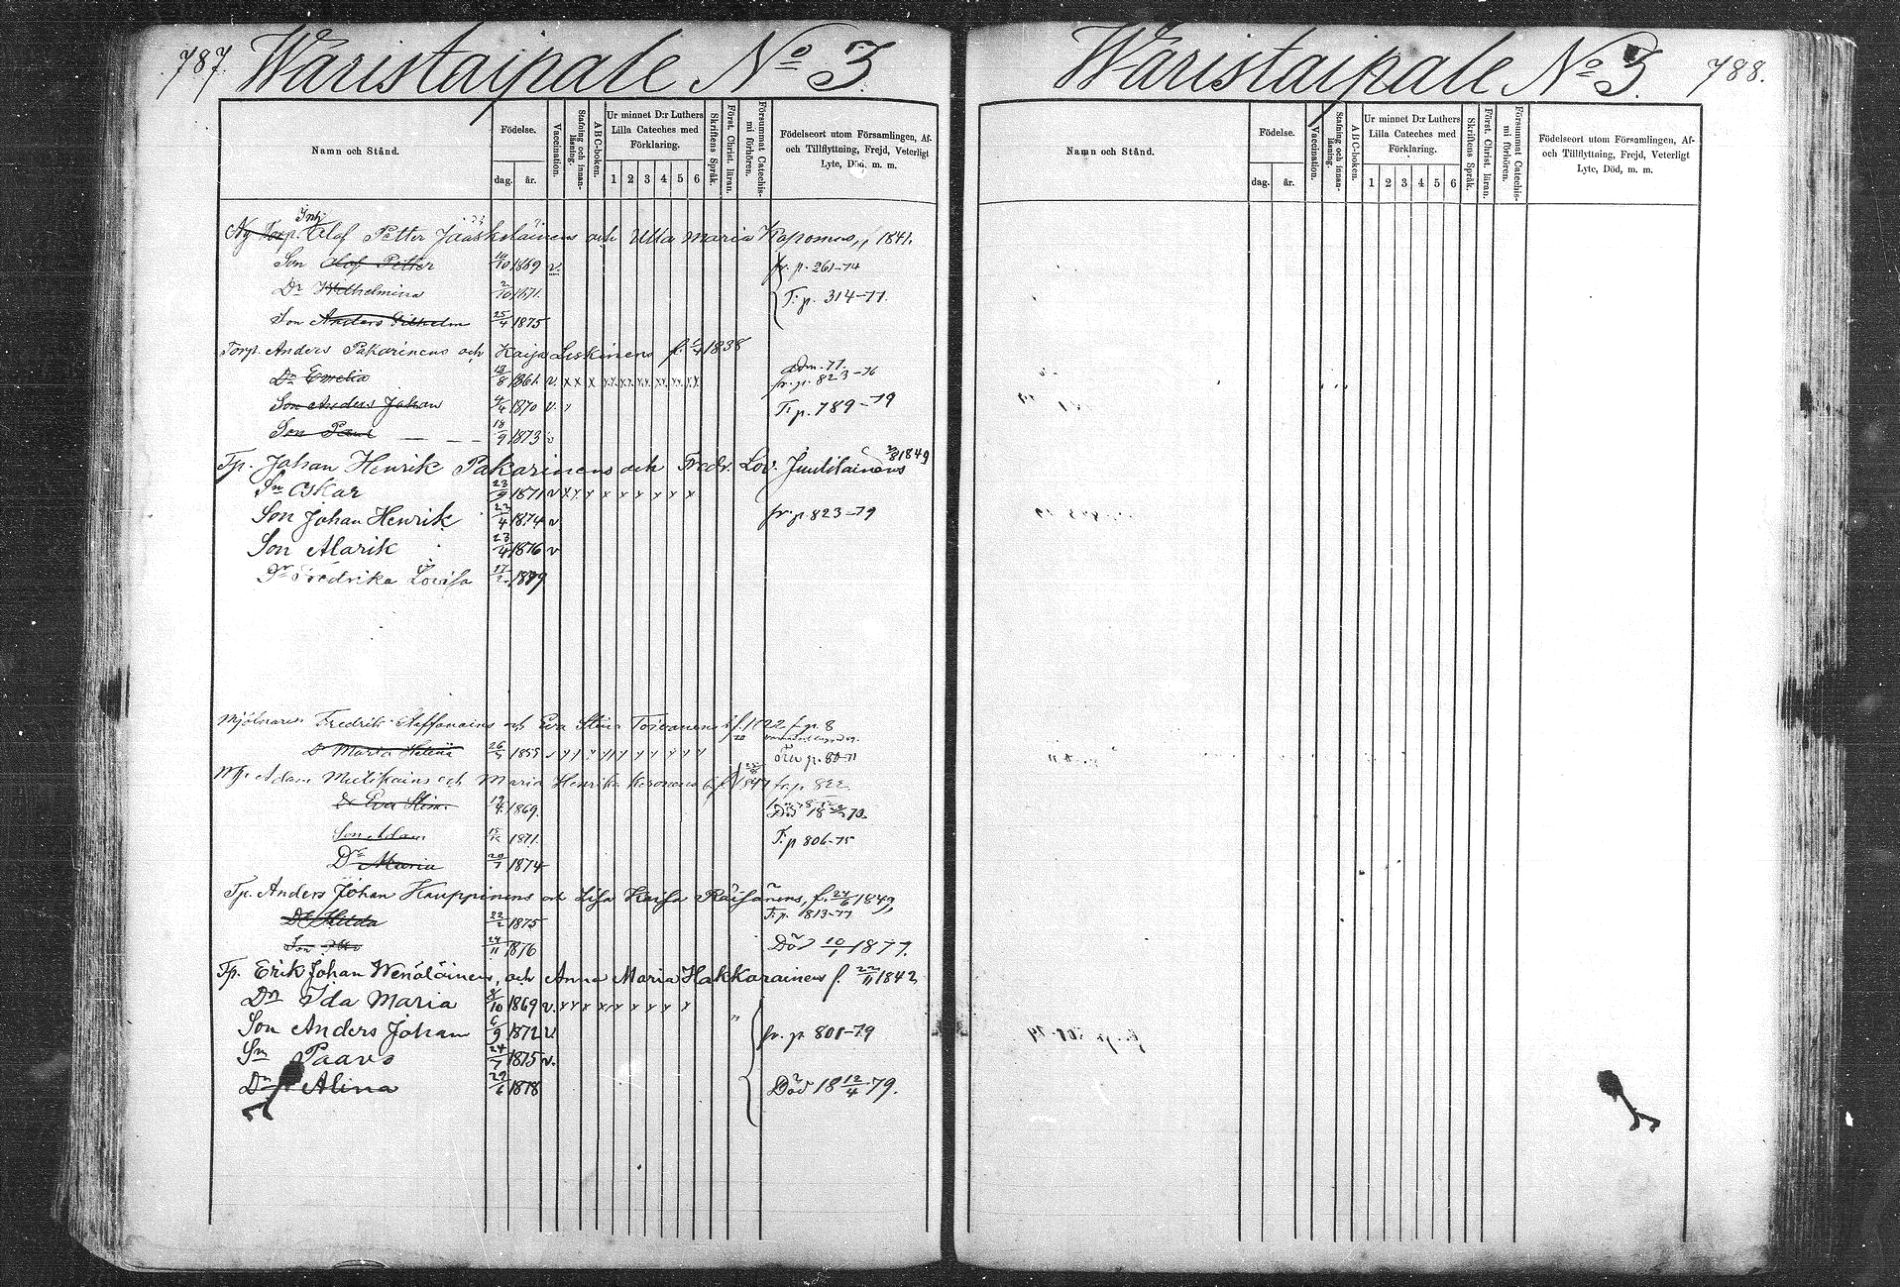 787. Waristaipale No 3
Namn och Stånd.
Födelse.
dag. år.
Vaccination.
Stafning och innanläsning.
ABC-boken.
Ur minnet D:r Luthers Lilla Cateches med Förklaring.
1 2 3 4 5 6
Skriftens Språk.
Först. Christ. läran.
Försummat Catechismi förhören.
Födelseort utom Församlingen, Af- och Tillflyttning, Frejd, Veterligt Lyte, Död, m. m.
Inh
Ny Torp. Olof Petter Jääskeläinens och Ulla Maria Kaponens, 1841.
Son Olof Petter 1869 v. fr. p. 261-74
Dr Wilhelmina 2/10 1871. T. p. 314-77.
Son Anders Wilhelm 25/4 1875
Torp. Anders Pakarinens och Kaija Leskinens f. 1838
adm. 77.
Dr Emelia 18/8 1861. v. x x x x x x x x x fr. p. 823-76
Son Anders Johan 4/4 1870 v. T. p. 789-79
Son Paul 18/9 1873 v
Tp. Johan Henrik Pakarinens och Fredr. Lov. Juutilainens 1849
Sn Oskar 23/9 1871 v x x x x x x x x x
Son Johan Henrik 23/4 1874 v fr. p. 823-79
Son Alarik 23/4 1876 v
Dr Fredrika Lovisa 17/2 1879
Mjölnaren Fredrik Steffanains och Eva Stina Toivanens f. 1822 f. p. 8
Dr Maria Helena 26/ 1859 p. 80-71
Adam Mutikains och Maria Henrika Karonens f. 1847 fr. p. 822
Dr Eva Stina 19/4 1869. Död 18 70.
Son Adam 1871. T. p 806-75
Dr Maria 20/7 1874
Tp. Anders Johan Kauppinens och Lisa Kaisa Räisänens, f. 24/6 1849,
Dr Hilda 22/2 1875 T. p. 813-77
Son 24/11 1876 Död 10/1 1877.
Tp. Erik Johan Wenäläinens, och Anna Maria Hakkarainens f. 22/11 1842
Dr Ida Maria 8/10 1869 v. x x x x x x x x x
Son Anders Johan 6/9 1872 v. fr. p. 801-79
Sn Paavo 24/7 1875 v.
Dr Alina 29/6 1878 Död 18 12/4 79.
Waristaipale No 3. 788.
Namn och Stånd.
Födelse.
dag. år.
Vaccination.
Stafning och innanläsning.
ABC-boken.
Ur minnet D:r Luthers Lilla Cateches med Förklaring.
1 2 3 4 5 6
Skriftens Språk.
Först. Christ. läran.
Försummat Catechismi förhören.
Födelseort utom Församlingen, Af- och Tillflyttning, Frejd, Veterligt Lyte, Död, m. m.